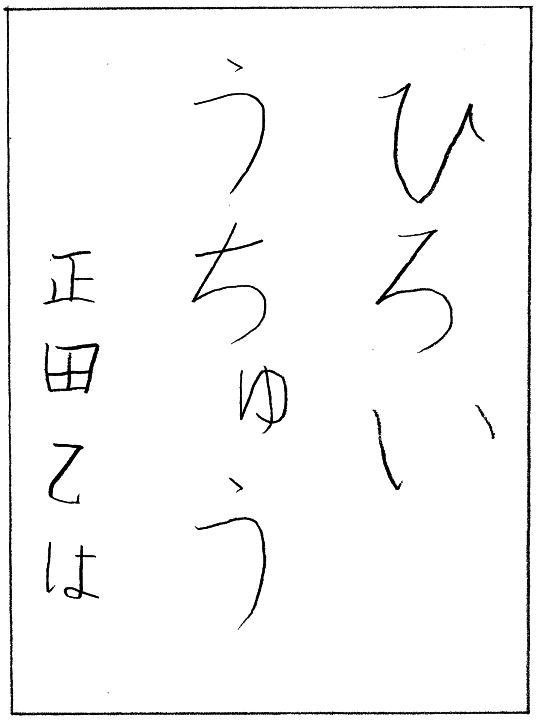 ひろい
うちゅう
正田乙は